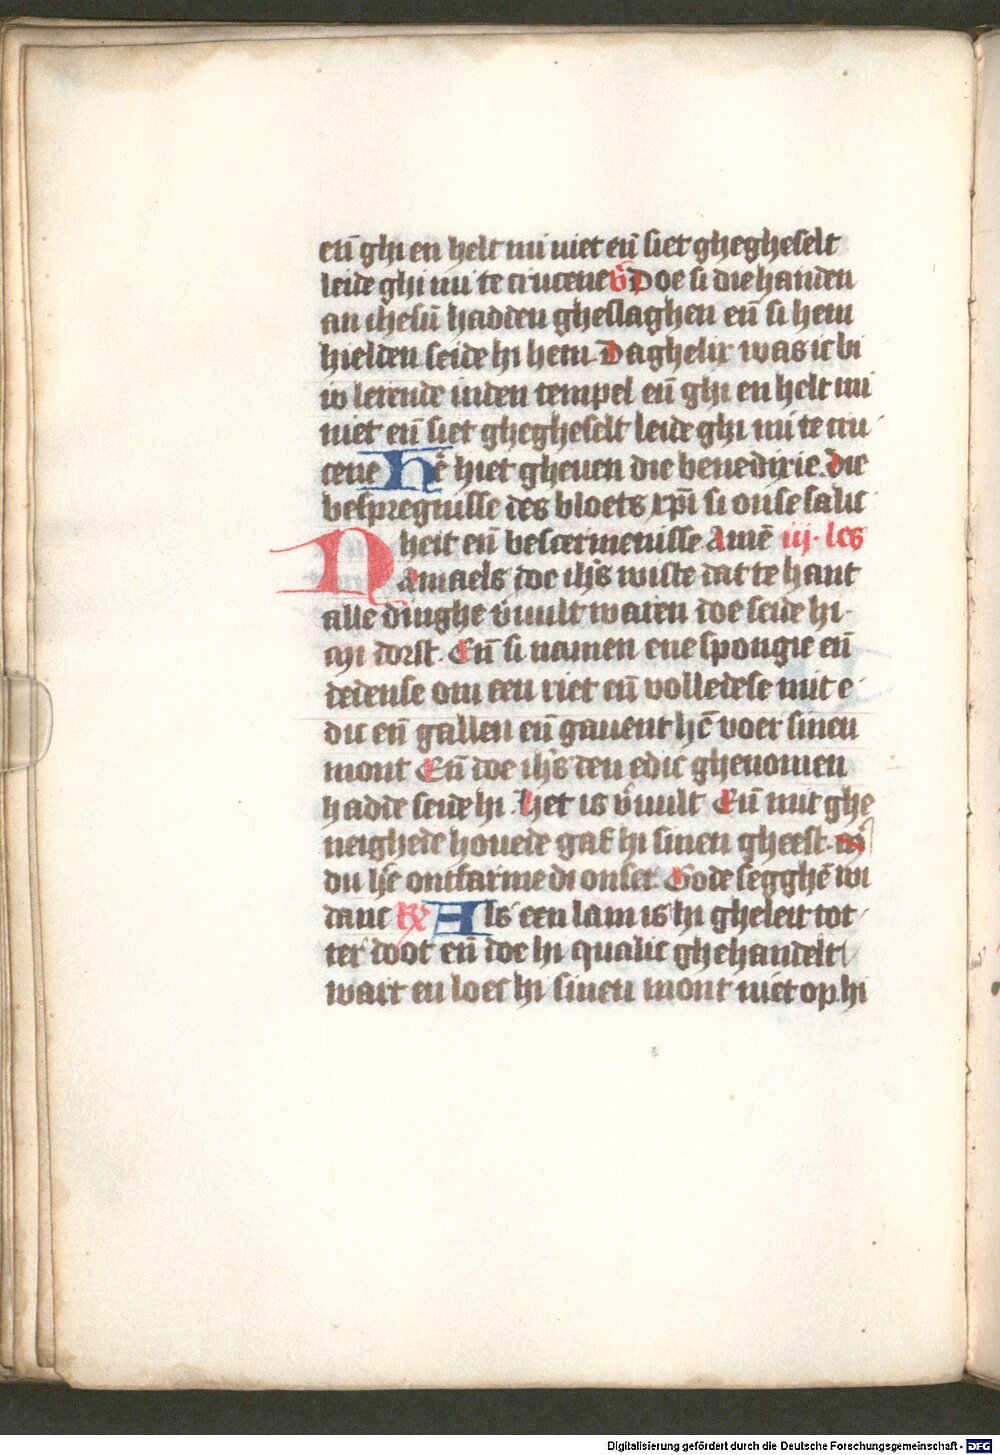 eñ ghi en helt mi niet eñ siet ghegheselt
leide ghi mi te crucene v̄ Doe si die handen
an ihesū hadden gheslaghen eñ si hem
hielden seide hi hem Daghelix was ic bi
iv lerende inden tempel eñ ghi en helt mi
niet eñ siet ghegheselt leide ghi mi te cru
cene Hē hiet gheuen die benedixie. die
bespregnisse des bloets xp̄i si onse salic
heit eñ bescermenisse Amē iij. les
Namaels doe ih̄s wiste dat te hant
alle dinghe v̄uult waren doe seide hi
mi dorst. Eñ si namen ene spongie eñ
dedense om een riet eñ volledese mit e
dic eñ gallen eñ gauent hē voer sinen
mont Eñ doe ih̄s den edic ghenomen
hadde seide hi. het is v̄uult Eñ mit ghe
neighede houede gaf hi sinen gheest.
du h̄e ontfarme di onser. Gode segghē wi
danc R̄ Als een lam is hi gheleit tot
ter doot eñ doe hi qualic ghehandelt
wart en loec hi sinen mont niet op. hi
Digitalisierung gefördert durch die Deutsche Forschungsgemeinschaft - DFG